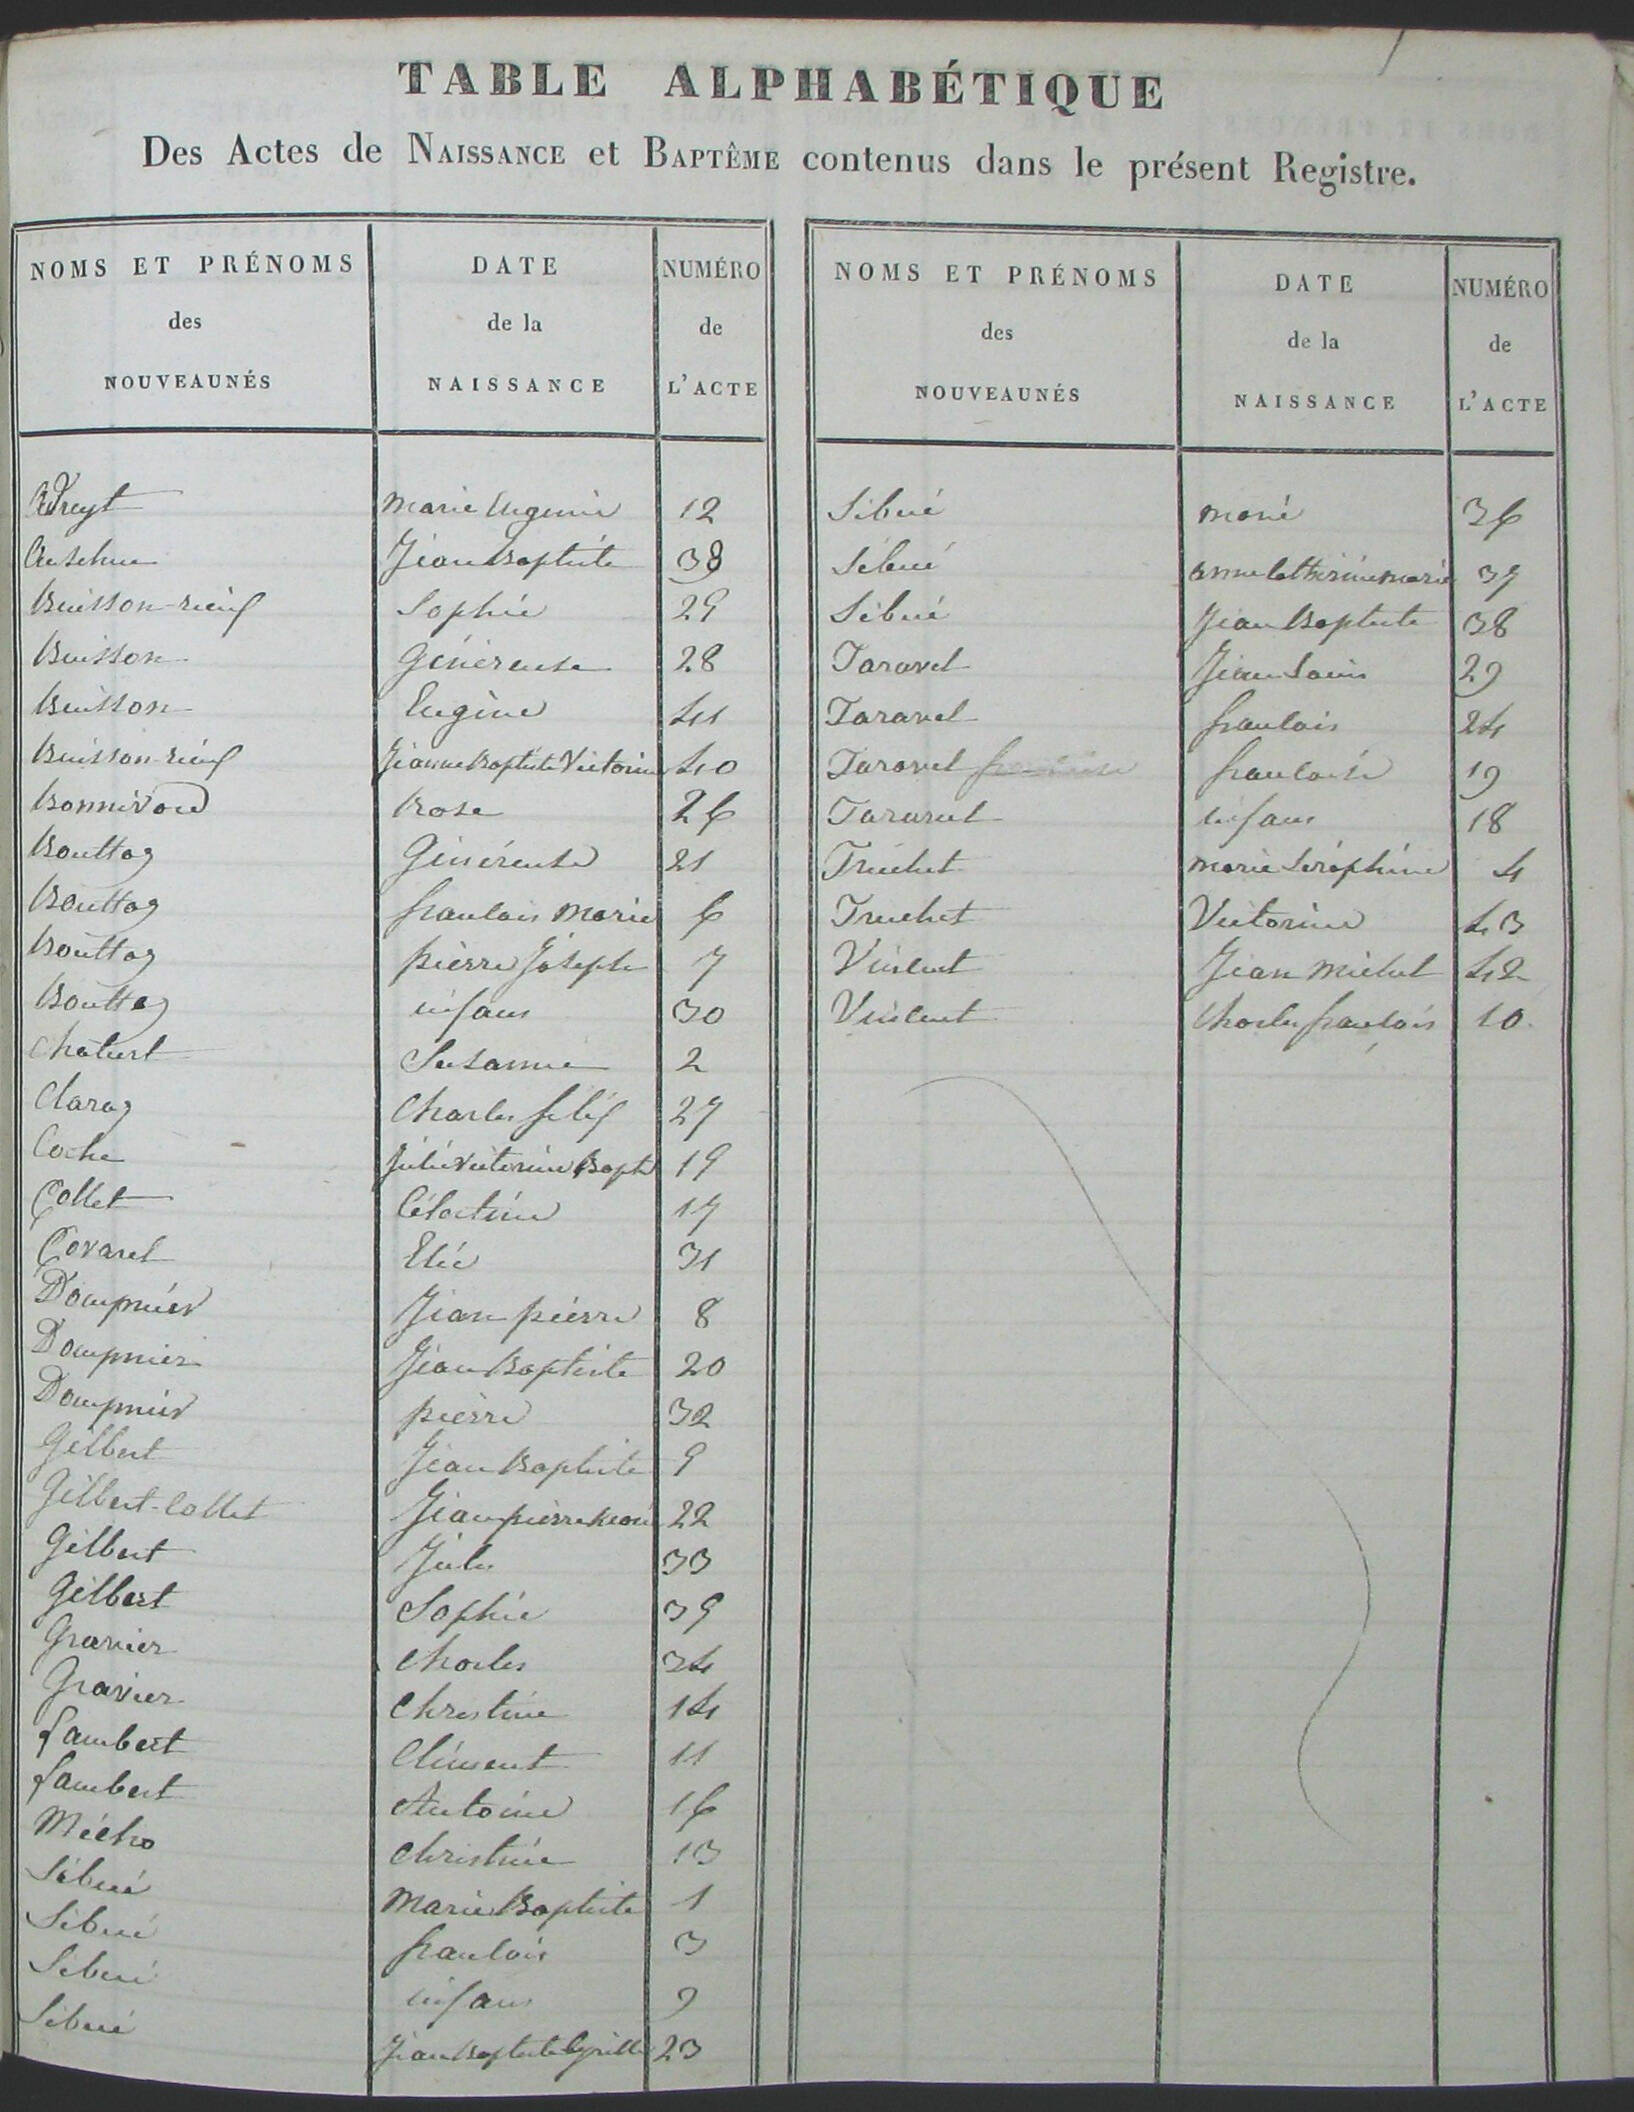 TABLE ALPHABÉTIQUE
Des Actes de NAISSANCE et BAPTÊME contenus dans le présent Registre.
NOMS ET PRÉNOMS
des
NOUVEAUNÉS
DATE
de la
NAISSANCE
NUMÉRO
de
L'ACTE
marie Eugenie 12
Anselme Jean Baptiste 38
Buisson-rieuf Sophie 29
Buisson Généreuse 28
Buisson Eugène 41
Buisson-rieuf Jeanne Baptiste Victorine 40
Bonnivard Rose 26
Bouttaz Généreuse 21
Bouttaz francois marie 6
Bouttaz pierre Joseph 7
Bouttaz infans 30
Susanne 2
Claraz Charles felix 27
Coche Julie victorine Bapte 19
Collet Célestine 17
Covarel Elie 31
Dompnier Jean pierre 8
Dompnier Jean Baptiste 20
Dompnier pierre 32
Gilbert Jean Baptiste 9
Gilbert-Collet Jean pierre 22
Gilbert Jules 33
Gilbert Sophie 39
Gravier Charles 34
Gravier Christine 14
Lambert Clément 11
Lambert Antoine 16
Christine 13
Sibué Marie Baptiste 1
Sibué francois 3
Sibué infans 9
Sibué Jean Baptiste Cyrille 23
NOMS ET PRÉNOMS
des
NOUVEAUNÉS
DATE
de la
NAISSANCE
NUMÉRO
de
L'ACTE
Sibué marié 36
Sibué anne Catherine marie 37
Sibué Jean Baptiste 38
Taravel Jean Louis 29
Taravel francois 24
Taravel francoise 19
Taravel infans 18
Truchet marie Séraphine 4
Truchet Victorine 43
Vincent Jean Michel 42
Vincent Charles francois 10